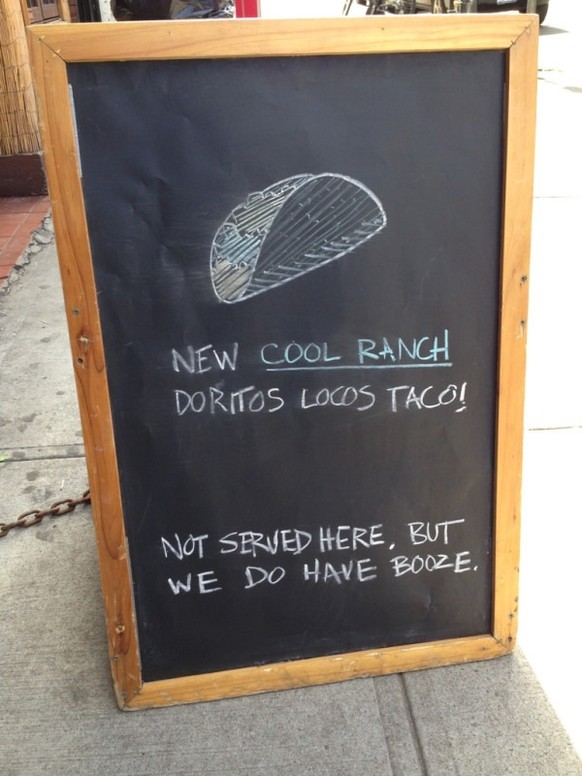 NEW COOL RANCH
DORITOS LOCOS TACO!
NOT SERVED HERE, BUT
WE DO HAVE BOOZE.